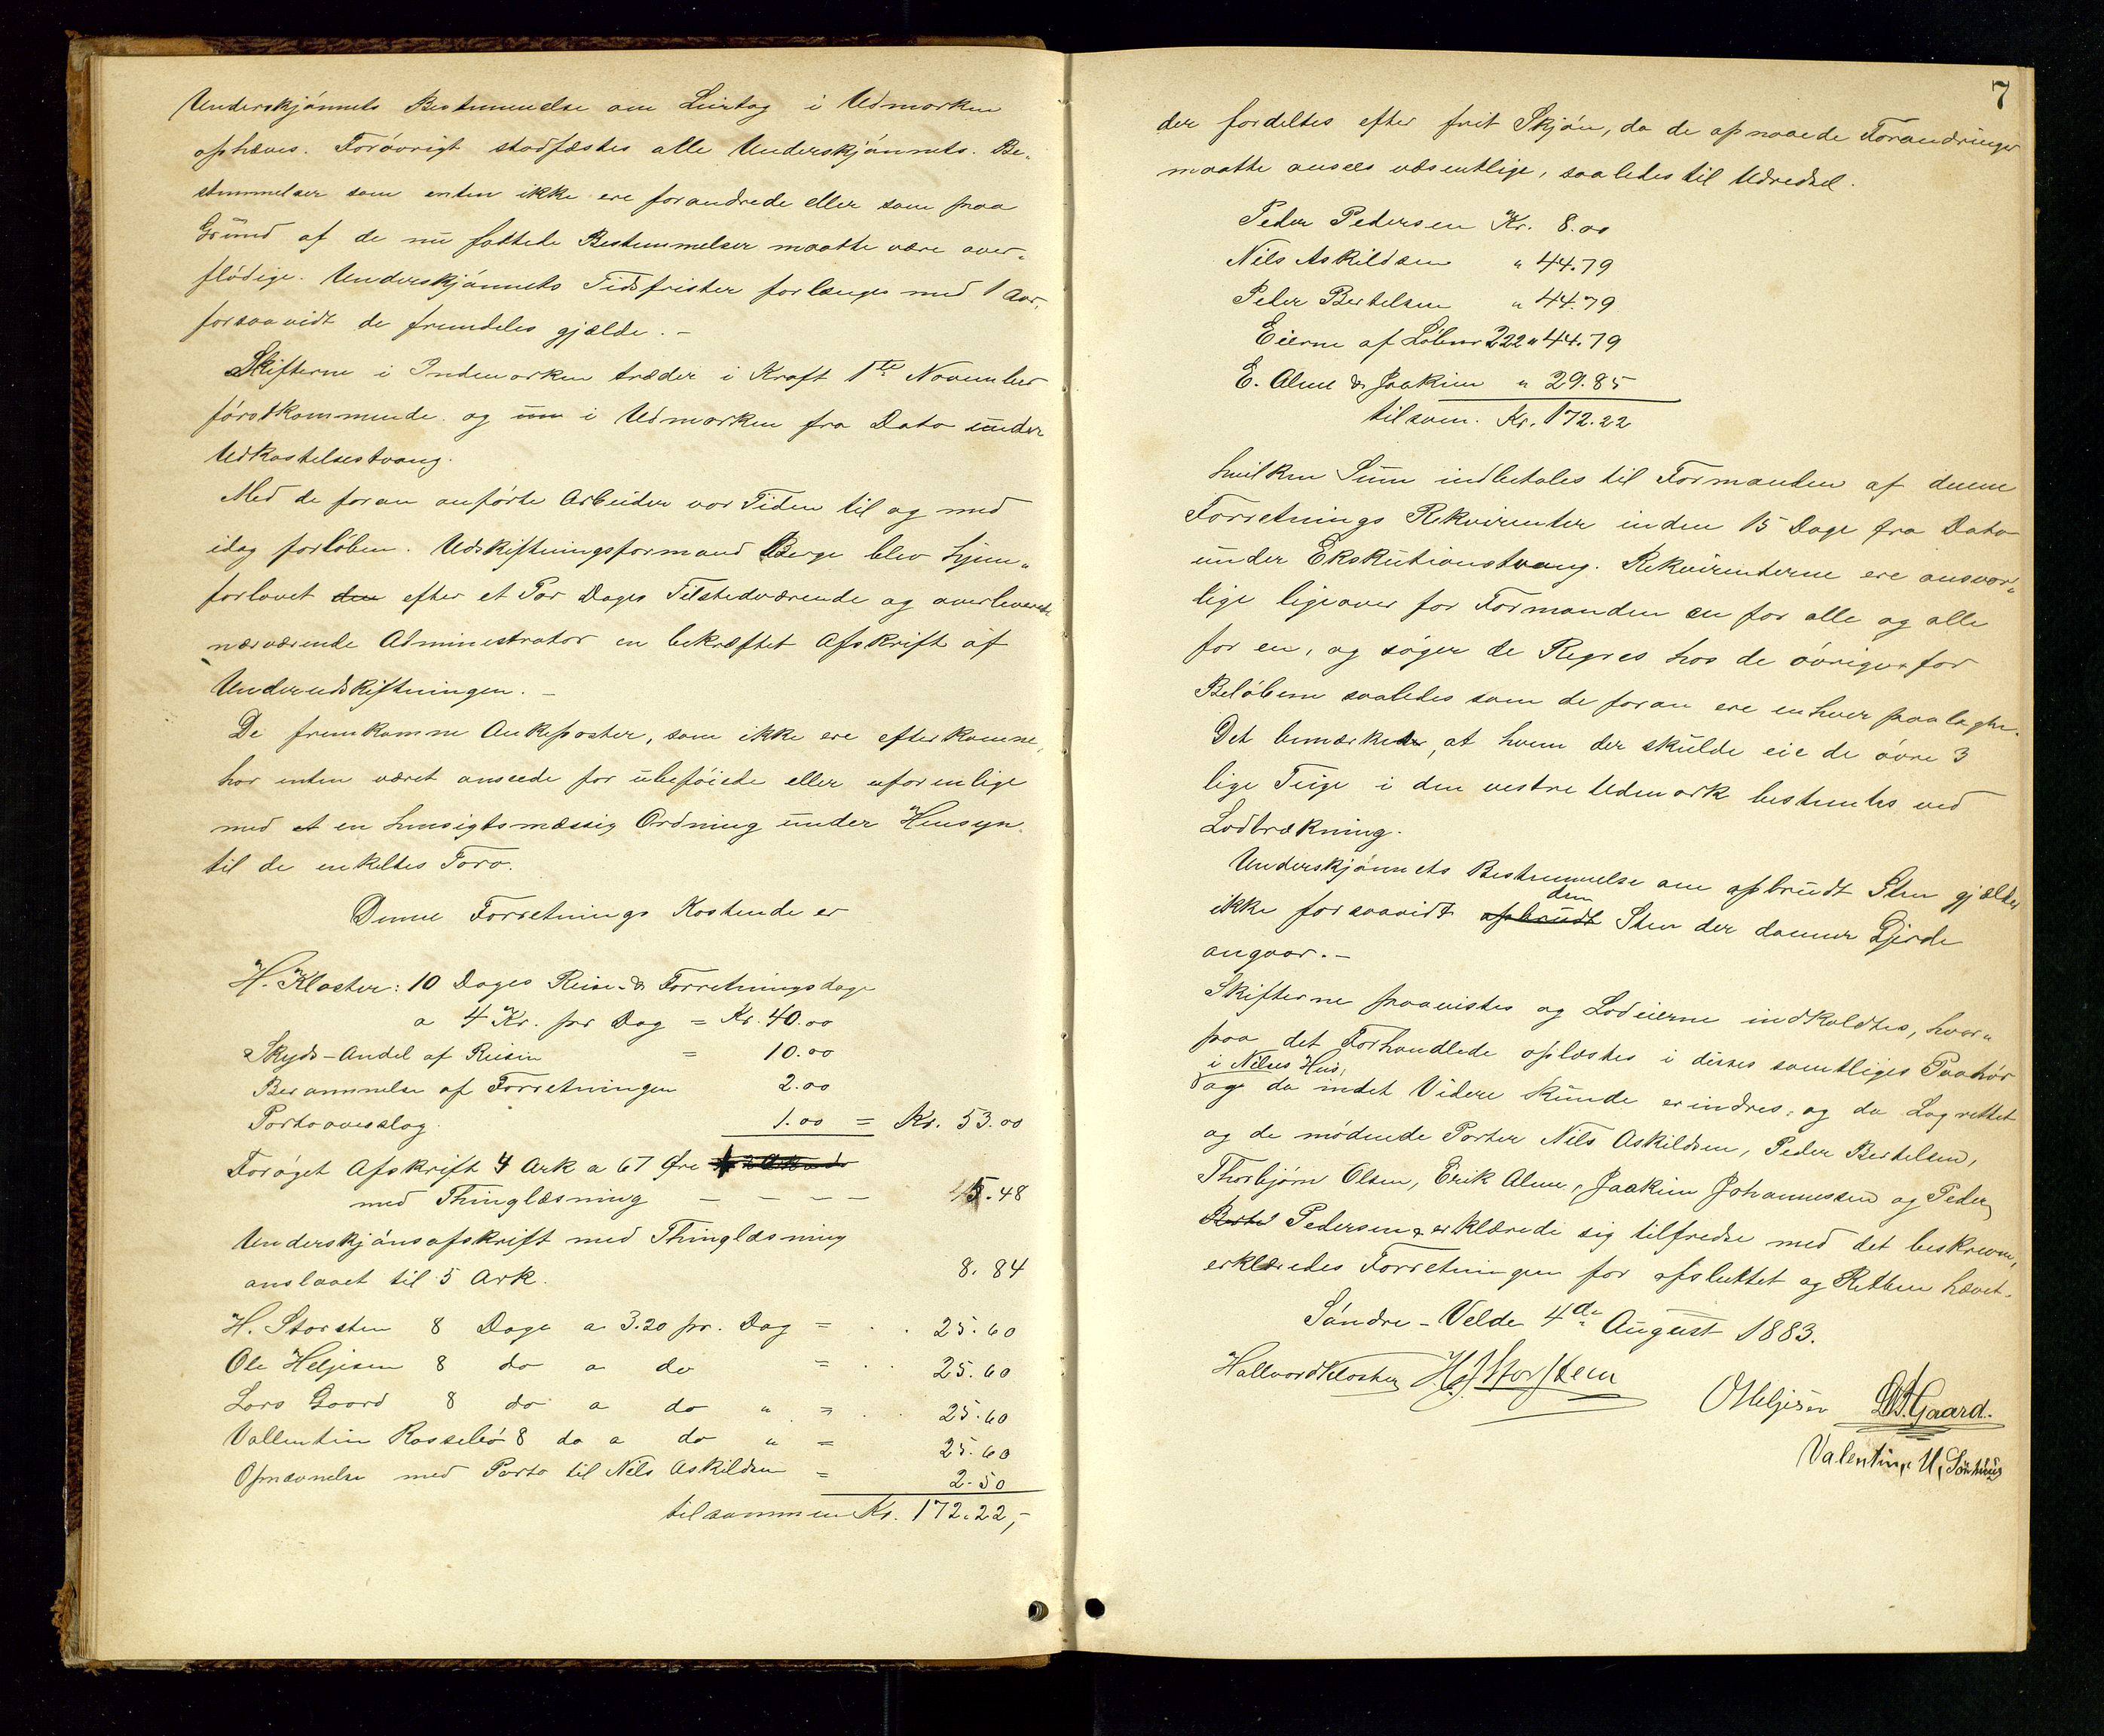 Underskjønnets Bestemmelse om Leirtag i Udmarken
ophæves. Forøvrigt stadfæstes alle Underskjønnets Be„
stemmelser som enten ikke ere forandrede eller som paa
Grund af de nu fattede Bestemmelser maatte være over„
flødige. Underskjønnets Tidsfrister forlænges med 1 Aar,
forsaavidt de fremdeles gjælde. –
Skifterne i Indmarken træder i Kraft 1ste November
førstkommende og i Udmarken fra Dato under
Udkastelsestvang.
Med de foran anførte Arbeider var Tiden til og med
idag forløben. Udskiftningsformand Berge blev hjem„
forlovet den efter et Par Dages Tilstedværende og overleverede
nærværende Administrator en bekræftet Afskrift af
Underudskiftningen. –
De fremkomne Ankeposter, som ikke ere efterkomne,
har enten været anseede for ubeføiede eller uforenlige
med et en hensigtsmæssig Ordning under Hensyn
til de enkeltes Tarv.
Denne Forretnings Kostende er
H. Kloster: 10 Dages Reise- & Forretningsdage
a 4 Kr. pr Dag = Kr. 40.00
Skyds-Andel af Reisen = 10.00
Berammelse af Forretningen 2.00
Portooverslag 1.00 = Kr. 53.00
Forøget Afskrift 4 Ark a 67 Øre
med Thinglæsning – – – – 5.48
Underskjønsafskrift med Thinglæsning
anslaaet til 5 Ark. 8.84
H. Storsten 8 Dage a 3.20 pr. Dag = . . 25.60
Ole Helgesen 8 do a do = . . 25.60
Lars Gaard 8 do a do " = . . 25.60
Vallentin Rossebø 8 do a do " = 25.60
Opnævnelse med Porto til Nils Askildsen = 2.50
tilsammen Kr. 172.22,-
7
der fordeltes efter frit Skjøn, da de opnaaede Forandringer
maatte ansees uvæsentlige, saaledes til Udredsel.
Peder Pedersen Kr. 8.00
Nils Askildsen " 44.79
Peder Bertelsen " 44.79
Eierne af Løbenr 222 " 44.79
E. Alne & Joakim " 29.85
tilsam. Kr. 172.22
hvilken Sum indbetales til Formanden af denne
Forretnings Rekvirenter inden 15 Dage fra Dato
under Eksekutionstvang. Rekvirenterne ere ansvar„
lige ligeover for Formanden en for alle og alle
for en, og søger de Regres hos de øvrige for
Beløbene saaledes som de foran ere enhver paalagte.
Det bemærkedes, at hvem der skulde eie de øvre 3
lige Teige i den vestre Udmark bestemtes ved
Lodtrækning.
Underskjønnets Bestemmelse om opbrudt Sten gjælder
den
ikke forsaavidt opbrudt Sten der danner Gjerde
angaar. –
Skifterne paavistes og Lodeierne indkaldtes, hvor„
paa det Forhandlede oplæstes i disses samtliges Paahør
i Nilses Hus,
og da intet Videre kunde erindres, og da Lagrettet
og de mødende Parter Nils Askildsen, Peder Bertelsen,
Thorbjørn Olsen, Erik Alne, Joakim Johannessen og Peder
Bertel Pedersen erklærede sig tilfredse med det beskrevne,
erklæredes Forretningen for afsluttet og Retten hævet.
Søndre-Velde 4de August 1883.
Hallvard Kloster H. Storstein
O Helgesen L. Gaard.
Valentin